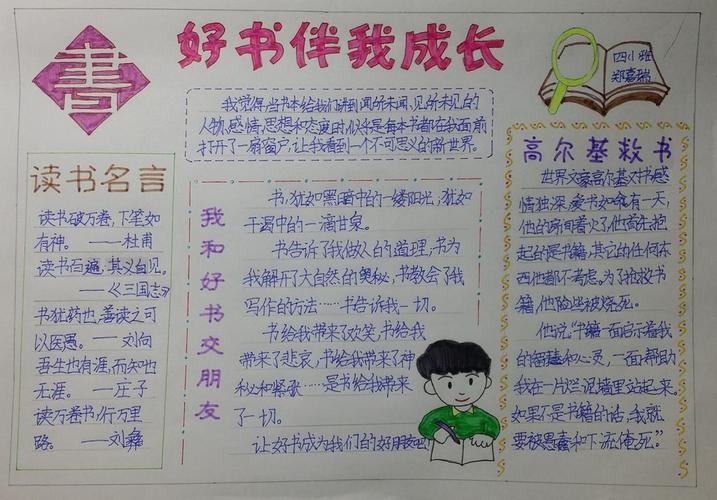 書
好书伴我成长
四(1)班
郑嘉瑞
我觉得,当书本给我们讲到闻所未闻,见所未见的
人物、感情、思想和态度时,似乎是每本书都在我面前
打开了一扇窗户,让我看到一个不可思议的新世界。
读书名言
读书破万卷,下笔如
有神。——杜甫
读书百遍,其义自见。
——《三国志》
书犹药也,善读之可
以医愚。——刘向
吾生也有涯,而知也
无涯。——庄子
读万卷书,行万里
路。——刘彝
我和好书交朋友
书,犹如黑暗中的一缕阳光,犹如
干渴中的一滴甘泉。
书告诉了我做人的道理,书为
我解开了大自然的奥秘,书教会了我
写作的方法……书告诉我一切。
书给我带来了欢笑,书给我
带来了悲哀,书给我带来了神
秘和紧张……是书给我带来
了一切。
让好书成为我们的好朋友吧!
高尔基救书
世界文豪高尔基对书感
情独深,爱书如命。有一天,
他的房间着火了,他首先抱
起的是书籍,其它的任何东
西他都不考虑。为了抢救书
籍,他险些被烧死。
他说:“书籍一面启示着我
的智慧和心灵,一面帮助
我在一片烂泥塘里站起来。
如果不是书籍的话,我就
要被愚蠢和下流淹死。”